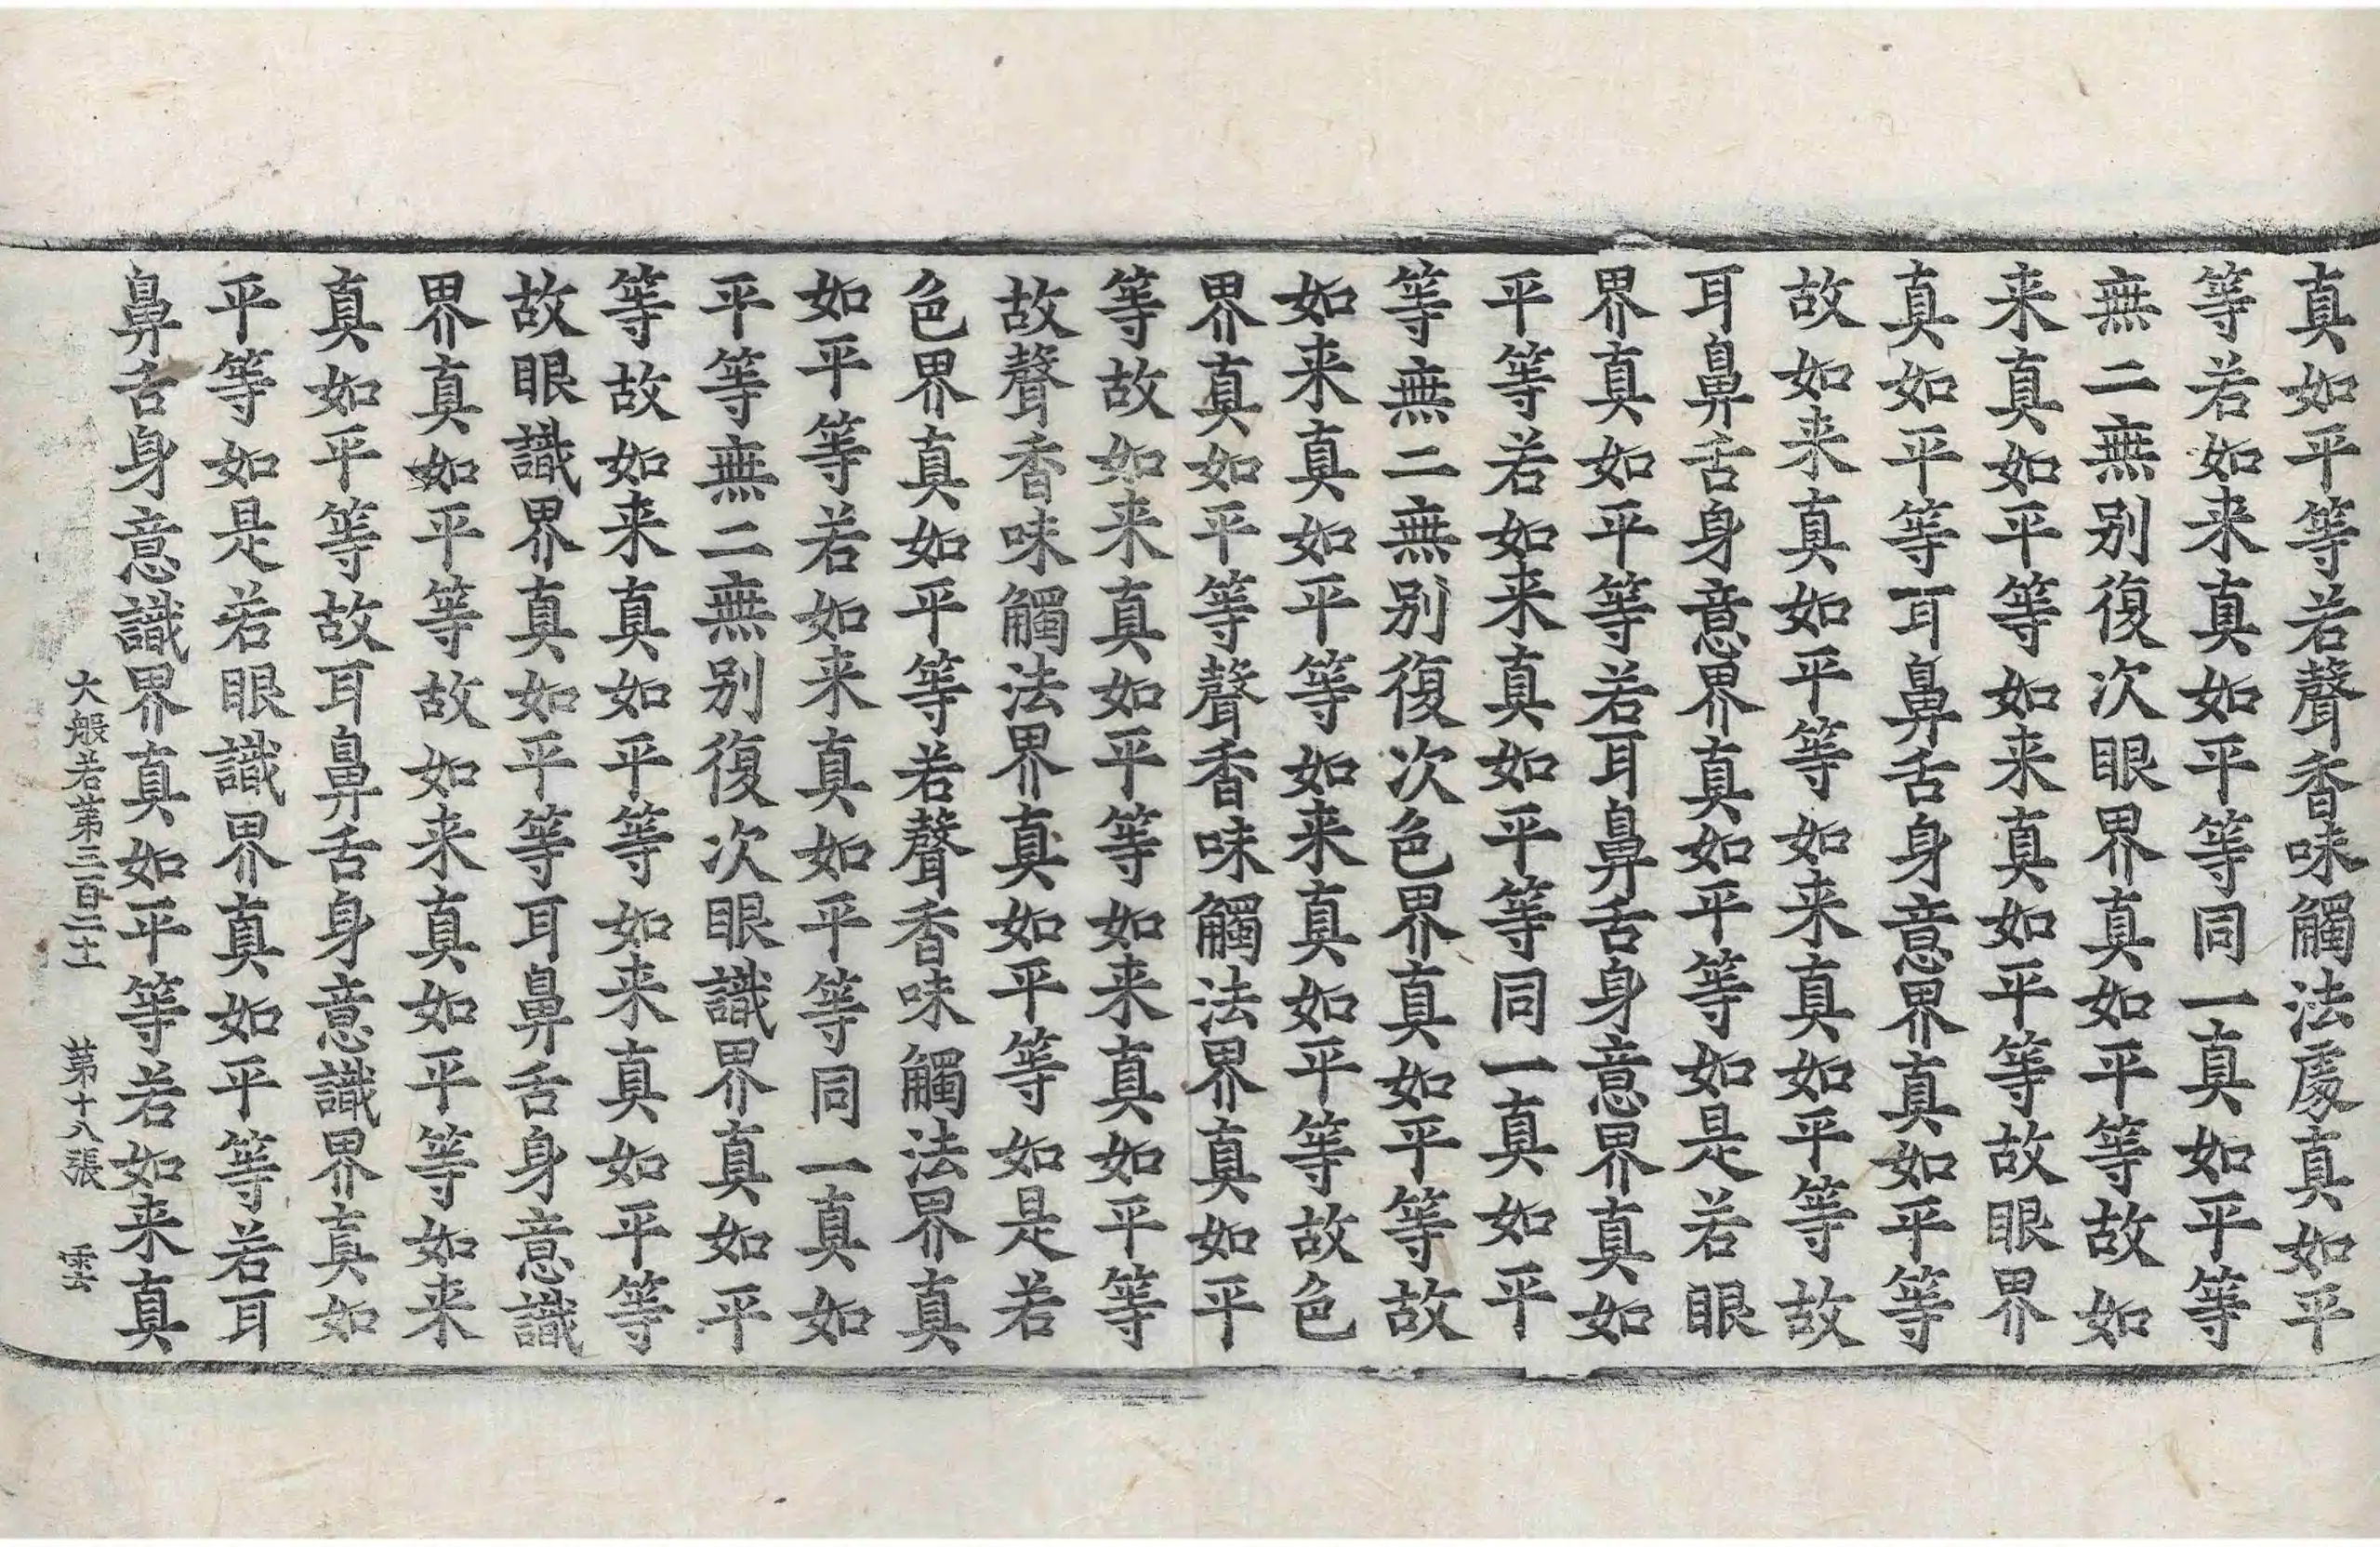 真如平等若聲香味觸法處真如平
等若如来真如平等同一真如平等
無二無别復次眼界真如平等故如
来真如平等如来真如平等故眼界
真如平等耳鼻舌身意界真如平等
故如来真如平等如来真如平等故
耳鼻舌身意界真如平等如是若眼
界真如平等若耳鼻舌身意界真如
平等若如来真如平等同一真如平
等無二無别復次色界真如平等故
如来真如平等如来真如平等故色
界真如平等聲香味觸法界真如平
等故如来真如平等如来真如平等
故聲香味觸法界真如平等如是若
色界真如平等若聲香味觸法界真
如平等若如来真如平等同一真如
平等無二無别復次眼識界真如平
等故如来真如平等如来真如平等
故眼識界真如平等耳鼻舌身意識
界真如平等故如来真如平等如来
真如平等故耳鼻舌身意識界真如
平等如是若眼識界真如平等若耳
鼻舌身意識界真如平等若如来真
大般若第三百二十一 第十八張